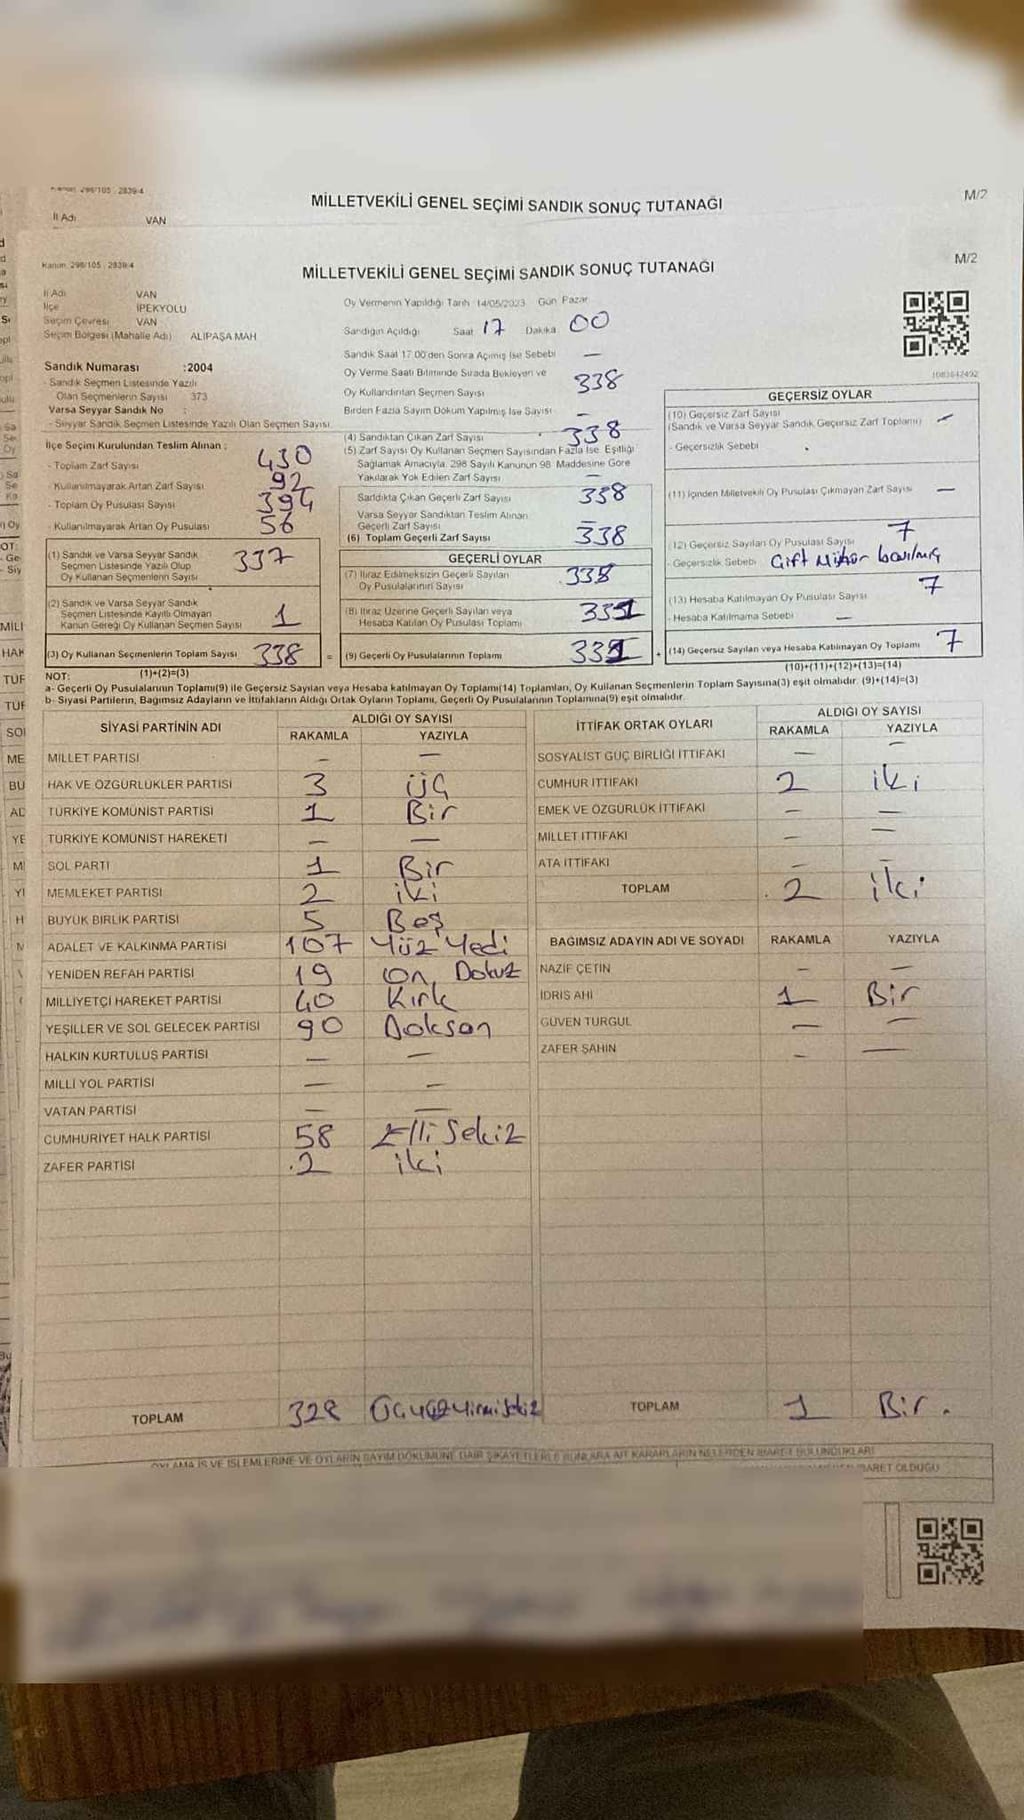 Kanun: 298/105 - 2839/4
MİLLETVEKİLİ GENEL SEÇİMİ SANDIK SONUÇ TUTANAĞI
M/2
İl Adı VAN
Kanun: 298/105 - 2839/4
MİLLETVEKİLİ GENEL SEÇİMİ SANDIK SONUÇ TUTANAĞI
M/2
İl Adı VAN
İlçe İPEKYOLU
Seçim Çevresi VAN
Seçim Bölgesi (Mahalle Adı) ALİPAŞA MAH
Sandık Numarası :2004
- Sandık Seçmen Listesinde Yazılı
Olan Seçmenlerin Sayısı 373
Varsa Seyyar Sandık No :
- Seyyar Sandık Seçmen Listesinde Yazılı Olan Seçmen Sayısı:
İlçe Seçim Kurulundan Teslim Alınan ;
- Toplam Zarf Sayısı 430
- Kullanılmayarak Artan Zarf Sayısı 92
- Toplam Oy Pusulası Sayısı 394
- Kullanılmayarak Artan Oy Pusulası 56
(1) Sandık ve Varsa Seyyar Sandık
Seçmen Listesinde Yazılı Olup
Oy Kullanan Seçmenlerin Sayısı 337
(2) Sandık ve Varsa Seyyar Sandık
Seçmen Listesinde Kayıtlı Olmayan
Kanun Gereği Oy Kullanan Seçmen Sayısı 1
(3) Oy Kullanan Seçmenlerin Toplam Sayısı 338 =
(1)+(2)=(3)
Oy Vermenin Yapıldığı Tarih 14/05/2023 Gün Pazar
Sandığın Açıldığı Saat 17 Dakika 00
Sandık Saat 17.00'den Sonra Açılmış İse Sebebi —
Oy Verme Saati Bitiminde Sırada Bekleyen ve
Oy Kullandırılan Seçmen Sayısı 338
Birden Fazla Sayım Döküm Yapılmış İse Sayısı -
(4) Sandıktan Çıkan Zarf Sayısı 338
(5) Zarf Sayısı Oy Kullanan Seçmen Sayısından Fazla İse, Eşitliği
Sağlamak Amacıyla, 298 Sayılı Kanunun 98. Maddesine Göre
Yakılarak Yok Edilen Zarf Sayısı —
Sandıkta Çıkan Geçerli Zarf Sayısı 338
Varsa Seyyar Sandıktan Teslim Alınan
Geçerli Zarf Sayısı —
(6) Toplam Geçerli Zarf Sayısı 338
GEÇERLİ OYLAR
(7) İtiraz Edilmeksizin Geçerli Sayılan
Oy Pusulalarının Sayısı
(8) İtiraz Üzerine Geçerli Sayılan veya
Hesaba Katılan Oy Pusulası Toplamı 331
(9) Geçerli Oy Pusulalarının Toplamı 331 +
1083642492
GEÇERSİZ OYLAR
(10) Geçersiz Zarf Sayısı
(Sandık ve Varsa Seyyar Sandık Geçersiz Zarf Toplamı) —
- Geçersizlik Sebebi :
(11) İçinden Milletvekili Oy Pusulası Çıkmayan Zarf Sayısı —
(12) Geçersiz Sayılan Oy Pusulası Sayısı 7
- Geçersizlik Sebebi Çift Mühür basılmış
(13) Hesaba Katılmayan Oy Pusulası Sayısı 7
- Hesaba Katılmama Sebebi —
(14) Geçersiz Sayılan veya Hesaba Katılmayan Oy Toplamı 7
(10)+(11)+(12)+(13)=(14)
NOT:
a- Geçerli Oy Pusulalarının Toplamı(9) ile Geçersiz Sayılan veya Hesaba katılmayan Oy Toplamı(14) Toplamları, Oy Kullanan Seçmenlerin Toplam Sayısına(3) eşit olmalıdır. (9)+(14)=(3)
b- Siyasi Partilerin, Bağımsız Adayların ve İttifakların Aldığı Ortak Oyların Toplamı, Geçerli Oy Pusulalarının Toplamına(9) eşit olmalıdır.
SİYASİ PARTİNİN ADI ALDIĞI OY SAYISI
RAKAMLA YAZIYLA
MİLLET PARTİSİ — —
HAK VE ÖZGÜRLÜKLER PARTİSİ 3 üç
TÜRKİYE KOMÜNİST PARTİSİ 1 Bir
TÜRKİYE KOMÜNİST HAREKETİ — —
SOL PARTİ 1 Bir
MEMLEKET PARTİSİ 2 iki
BÜYÜK BİRLİK PARTİSİ 5 Beş
ADALET VE KALKINMA PARTİSİ 107 Yüz Yedi
YENİDEN REFAH PARTİSİ 19 On Dokuz
MİLLİYETÇİ HAREKET PARTİSİ 40 Kırk
YEŞİLLER VE SOL GELECEK PARTİSİ 90 Doksan
HALKIN KURTULUŞ PARTİSİ — —
MİLLİ YOL PARTİSİ — —
VATAN PARTİSİ — —
CUMHURİYET HALK PARTİSİ 58 Elli Sekiz
ZAFER PARTİSİ 2 iki
TOPLAM 328 Üçyüzyirmisekiz
İTTİFAK ORTAK OYLARI ALDIĞI OY SAYISI
RAKAMLA YAZIYLA
SOSYALİST GÜÇ BİRLİĞİ İTTİFAKI — —
CUMHUR İTTİFAKI 2 iki
EMEK VE ÖZGÜRLÜK İTTİFAKI — —
MİLLET İTTİFAKI — —
ATA İTTİFAKI — —
TOPLAM 2 iki
BAĞIMSIZ ADAYIN ADI VE SOYADI RAKAMLA YAZIYLA
NAZİF ÇETİN — —
İDRİS AHİ 1 Bir
GÜVEN TURGUL — —
ZAFER ŞAHİN — —
TOPLAM 1 Bir.
OYLAMA İŞ VE İŞLEMLERİNE VE OYLARIN SAYIM DÖKÜMÜNE DAİR ŞİKAYETLERLE BUNLARA AİT KARARLARIN NELERDEN İBARET BULUNDUKLARI
İBARET OLDUĞU